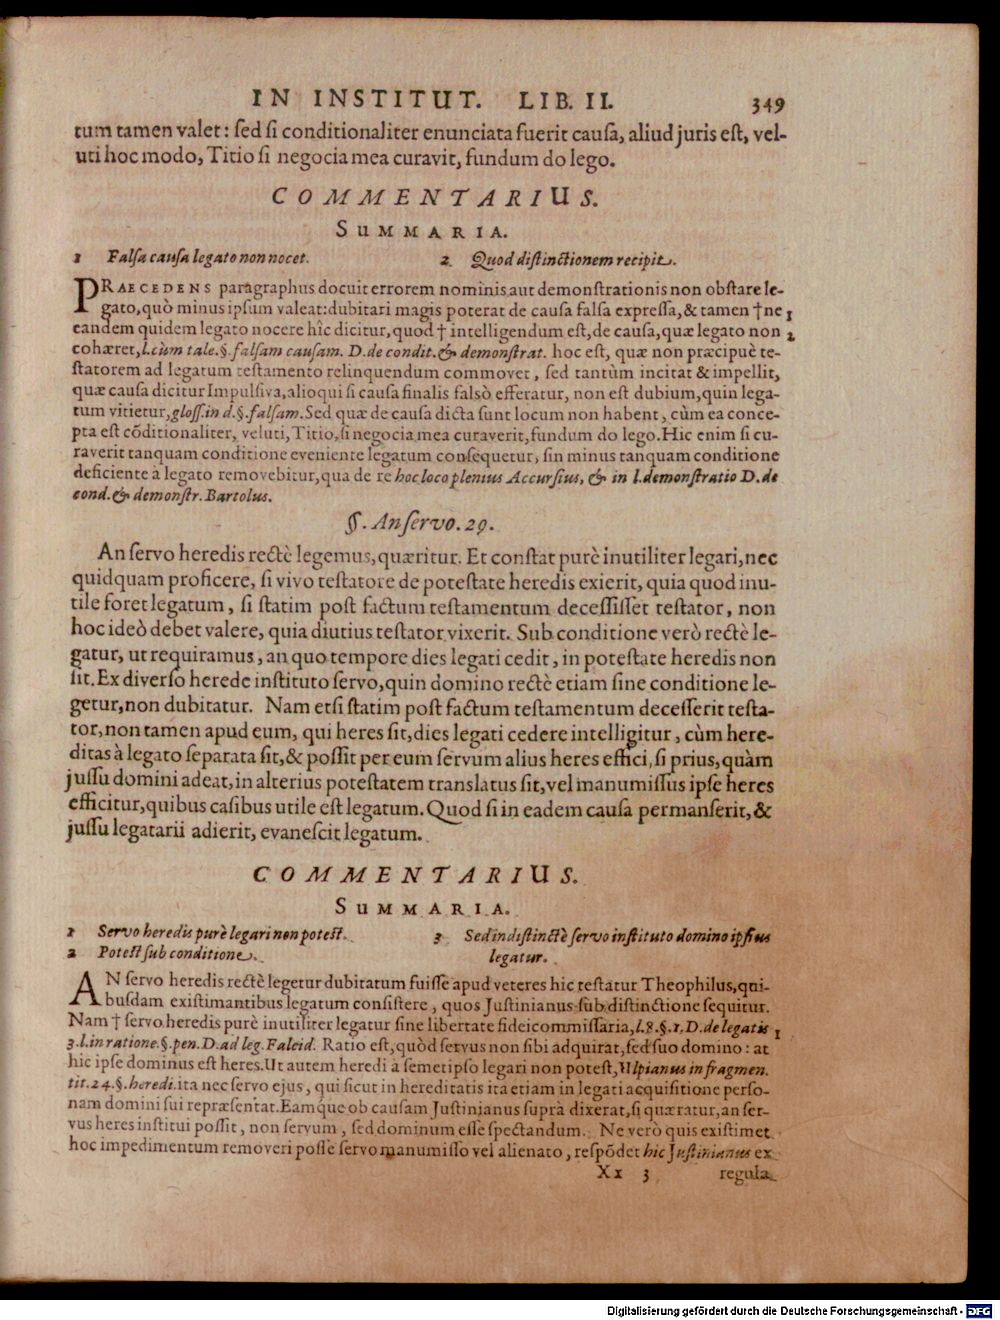 IN INSTITUT. LIB. II. 349
tum tamen valet: sed si conditionaliter enunciata fuerit causa, aliud juris est, vel-
uti hoc modo, Titio si negocia mea curavit, fundum do lego.
COMMENTARIUS.
SUMMARIA.
1 Falsa causa legato non nocet.
2 Quod distinctionem recipit.
PRAECEDENS paragraphus docuit errorem nominis aut demonstrationis non obstare le-
gato, quò minus ipsum valeat: dubitari magis poterat de causa falsa expressa, & tamen † ne 1
eandem quidem legato nocere hîc dicitur, quod † intelligendum est, de causa, quæ legato non 2
cohæret, l. cùm tale. §. falsam causam. D. de condit. & demonstrat. hoc est, quæ non præcipuè te-
statorem ad legatum testamento relinquendum commovet, sed tantùm incitat & impellit,
quæ causa dicitur Impulsiva, alioqui si causa finalis falsò efferatur, non est dubium, quin lega-
tum vitietur, gloss. in d. §. falsam. Sed quæ de causa dicta sunt locum non habent, cùm ea conce-
pta est cōditionaliter, veluti, Titio, si negocia mea curaverit, fundum do lego. Hic enim si cu-
raverit tanquam conditione eveniente legatum consequetur, sin minus tanquam conditione
deficiente à legato removebitur, qua de re hoc loco plenius Accursius, & in l. demonstratio D. de
cond. & demonstr. Bartolus.
§. An servo. 29.
An servo heredis rectè legemus, quæritur. Et constat purè inutiliter legari, nec
quidquam proficere, si vivo testatore de potestate heredis exierit, quia quod inu-
tile foret legatum, si statim post factum testamentum decessisset testator, non
hoc ideò debet valere, quia diutius testator vixerit. Sub conditione verò rectè le-
gatur, ut requiramus, an quo tempore dies legati cedit, in potestate heredis non
sit. Ex diverso herede instituto servo, quin domino rectè etiam sine conditione le-
getur, non dubitatur. Nam etsi statim post factum testamentum decesserit testa-
tor, non tamen apud eum, qui heres sit, dies legati cedere intelligitur, cùm here-
ditas à legato separata sit, & possit per eum servum alius heres effici, si prius, quàm
jussu domini adeat, in alterius potestatem translatus sit, vel manumissus ipse heres
efficitur, quibus casibus utile est legatum. Quod si in eadem causa permanserit, &
jussu legatarii adierit, evanescit legatum.
COMMENTARIUS.
SUMMARIA.
1 Servo heredis purè legari non potest.
2 Potest sub conditione.
3 Sed indistinctè servo instituto domino ipsius
legatur.
AN servo heredis rectè legetur dubitatum fuisse apud veteres hic testatur Theophilus, qui-
busdam existimantibus legatum consistere, quos Justinianus sub distinctione sequitur.
Nam † servo heredis purè inutiliter legatur sine libertate fideicommissaria, l. 8. §. 1. D. de legatis 1
3. l. in ratione. §. pen. D. ad leg. Falcid. Ratio est, quòd servus non sibi adquirat, sed suo domino: at
hic ipse dominus est heres. Ut autem heredi à semetipso legari non potest, Ulpianus in fragmen.
tit. 24. §. heredi. ita nec servo ejus, qui sicut in hereditatis ita etiam in legati acquisitione perso-
nam domini sui repræsentat. Eamque ob causam Justinianus suprà dixerat, si quæratur, an ser-
vus heres institui possit, non servum, sed dominum esse spectandum. Ne verò quis existimet
hoc impedimentum removeri posse servo manumisso vel alienato, respōdet hic Justinianus ex
Xx 3 regula
Digitalisierung gefördert durch die Deutsche Forschungsgemeinschaft - DFG